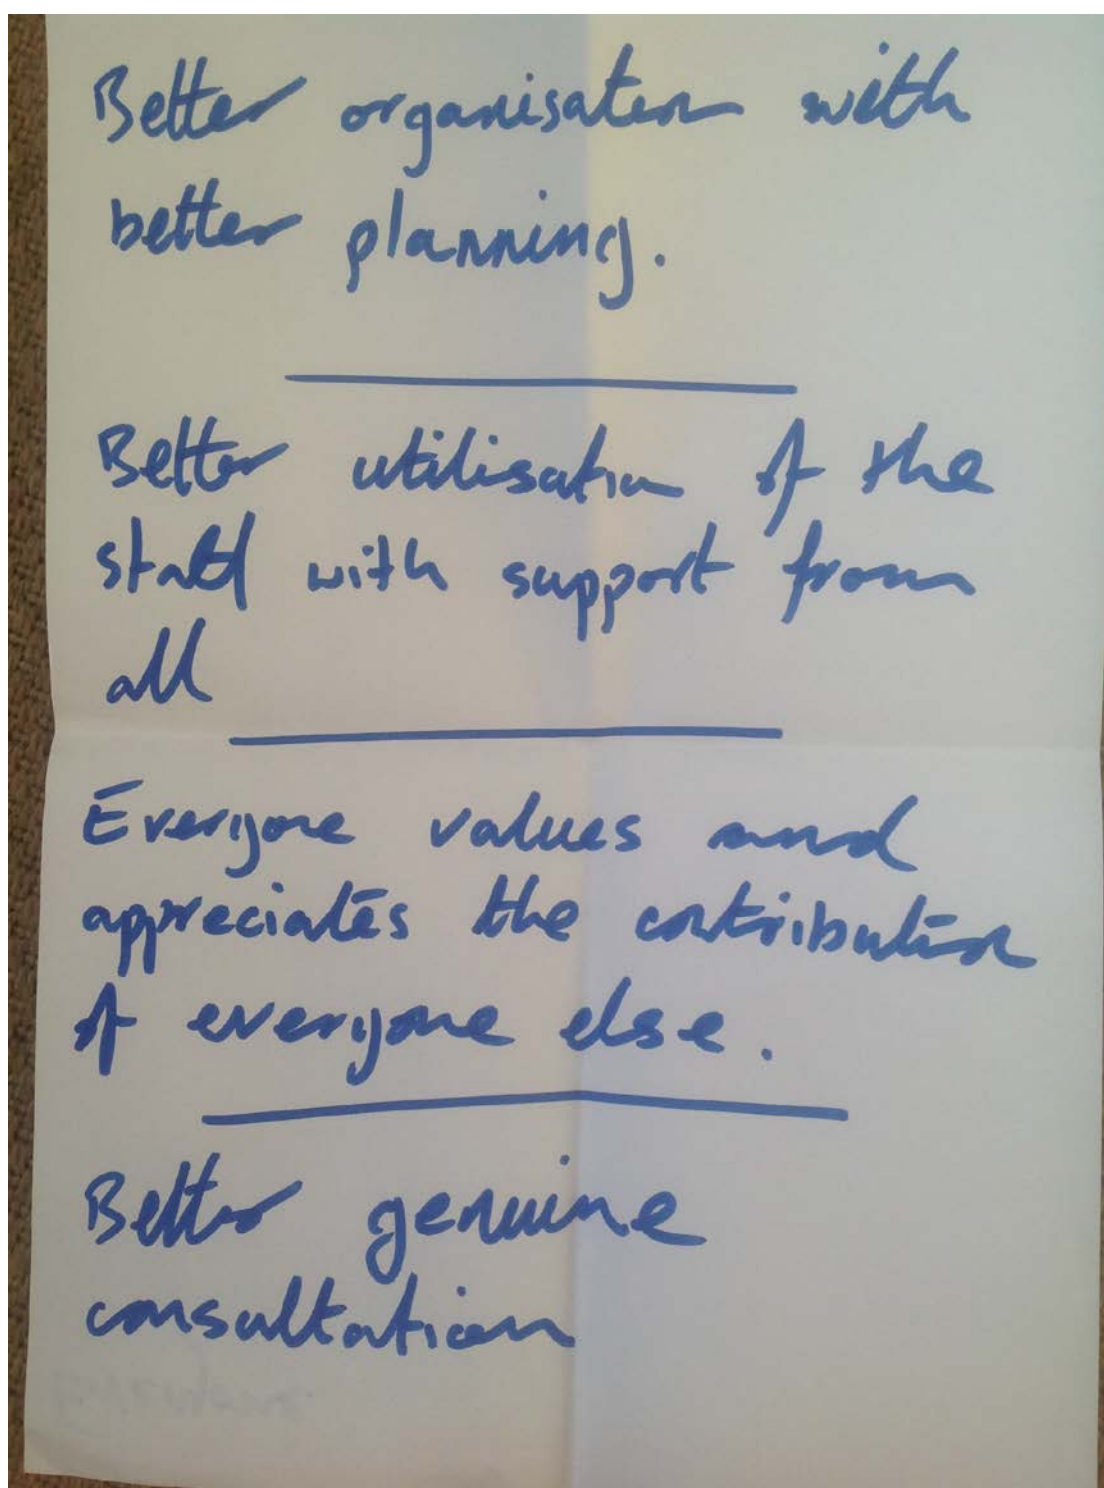 Better organisation with
better planning.
Better utilisation of the
staff with support from
all
Everyone values and
appreciates the contribution
of everyone else.
Better genuine
consultation